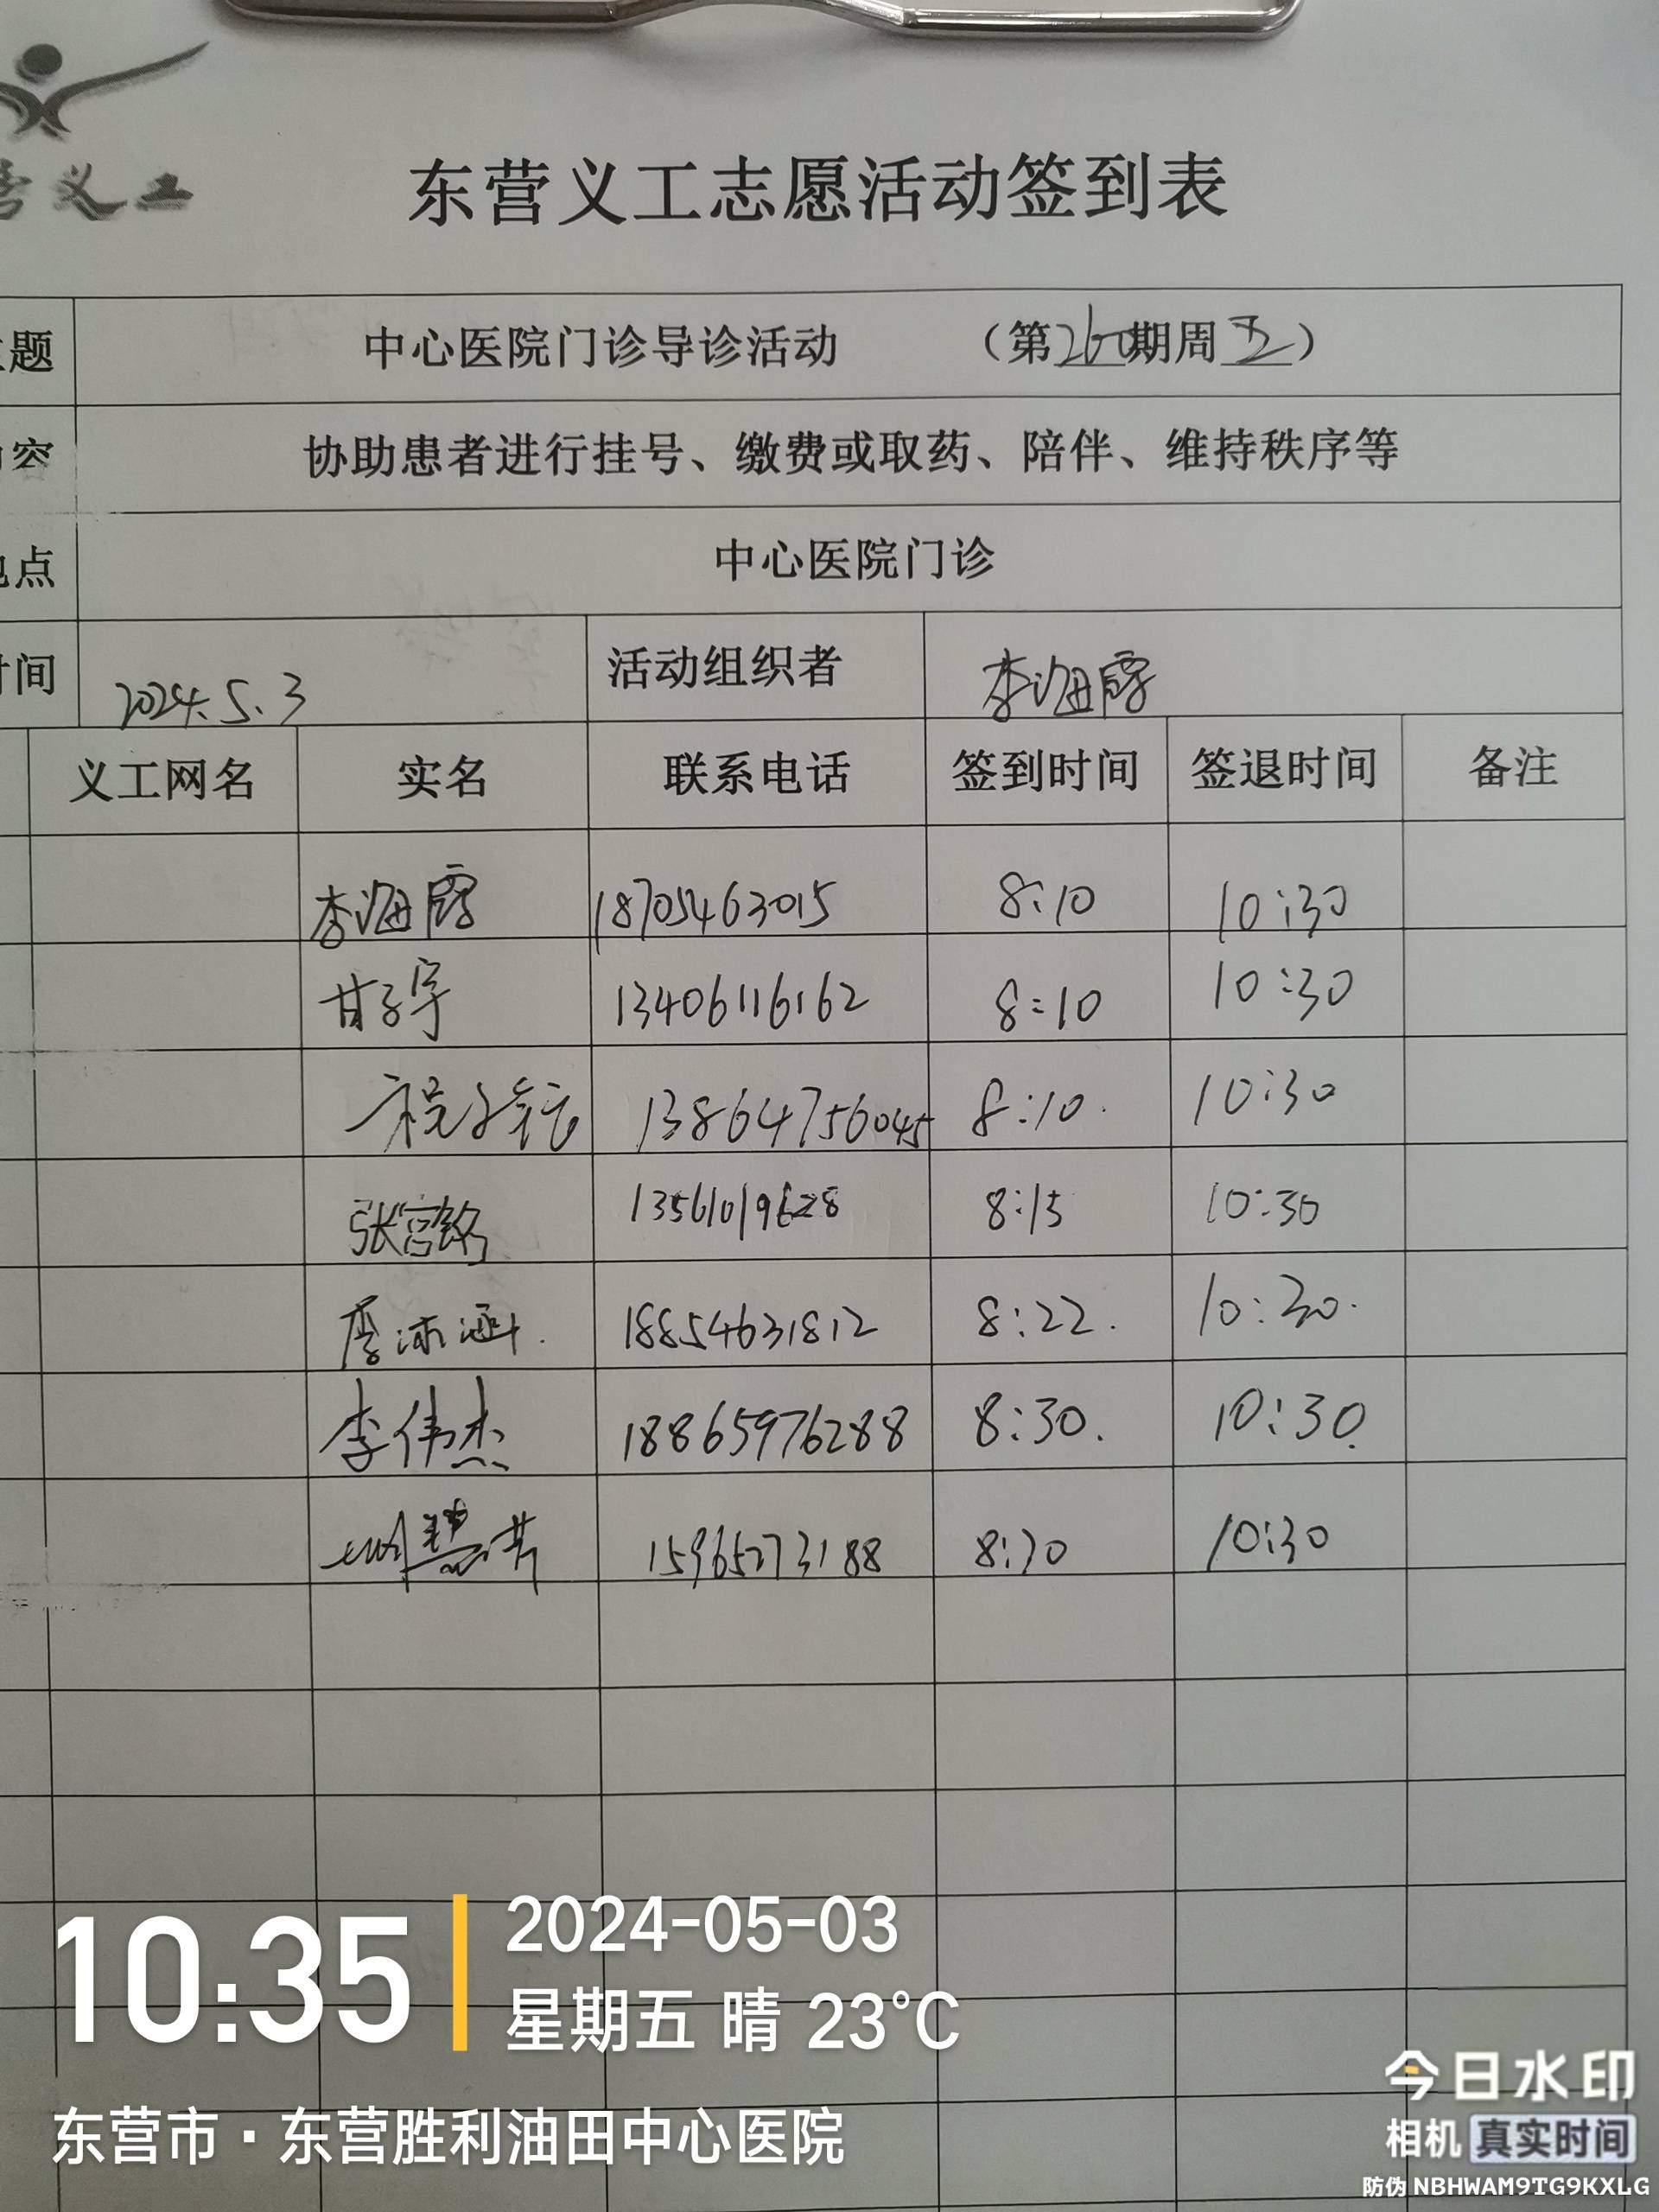 营义工
东营义工志愿活动签到表
题 中心医院门诊导诊活动 （第260期周五）
容 协助患者进行挂号、缴费或取药、陪伴、维持秩序等
地点 中心医院门诊
时间 2024.5.3 活动组织者 李海霞
义工网名 实名 联系电话 签到时间 签退时间 备注
李海霞 18705463015 8:10 10:30
甘子宇 13406116162 8:10 10:30
13864756045 8:10 10:30
张宫铭 8:15 10:30
18854631812 8:22 10:30
李伟杰 18865976288 8:30 10:30
15965273188 8:30 10:30
10:35
2024-05-03
星期五 晴 23°C
东营市·东营胜利油田中心医院
今日水印
相机 真实时间
防伪 NBHWAM9TG9KXLG